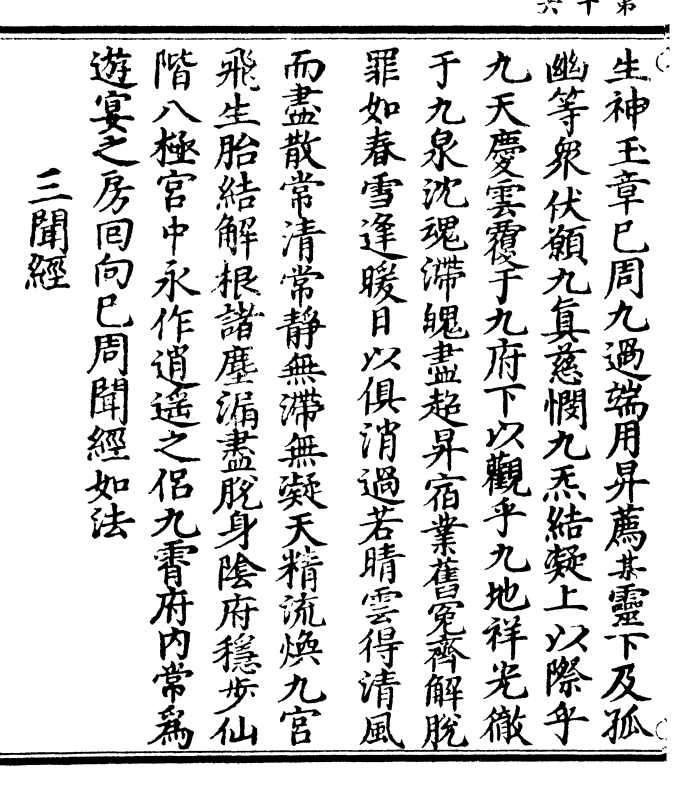 第十六
生神玉章已周九過端用昇薦某靈下及孤
幽等衆伏願九真慈憫九炁結凝上以際乎
九天慶雲覆于九府下以觀乎九地祥光徹
于九泉沈魂滯魄盡超昇宿業舊冤齊解脫
罪如春雪逢暖日以俱消過若晴雲得清風
而盡散常清常靜無滯無凝天精流煥九宮
飛生胎結解根諸塵漏盡脫身陰府穩步仙
階八極宮中永作逍遥之侣九霄府内常爲
遊宴之房囘向已周聞經如法
三聞經